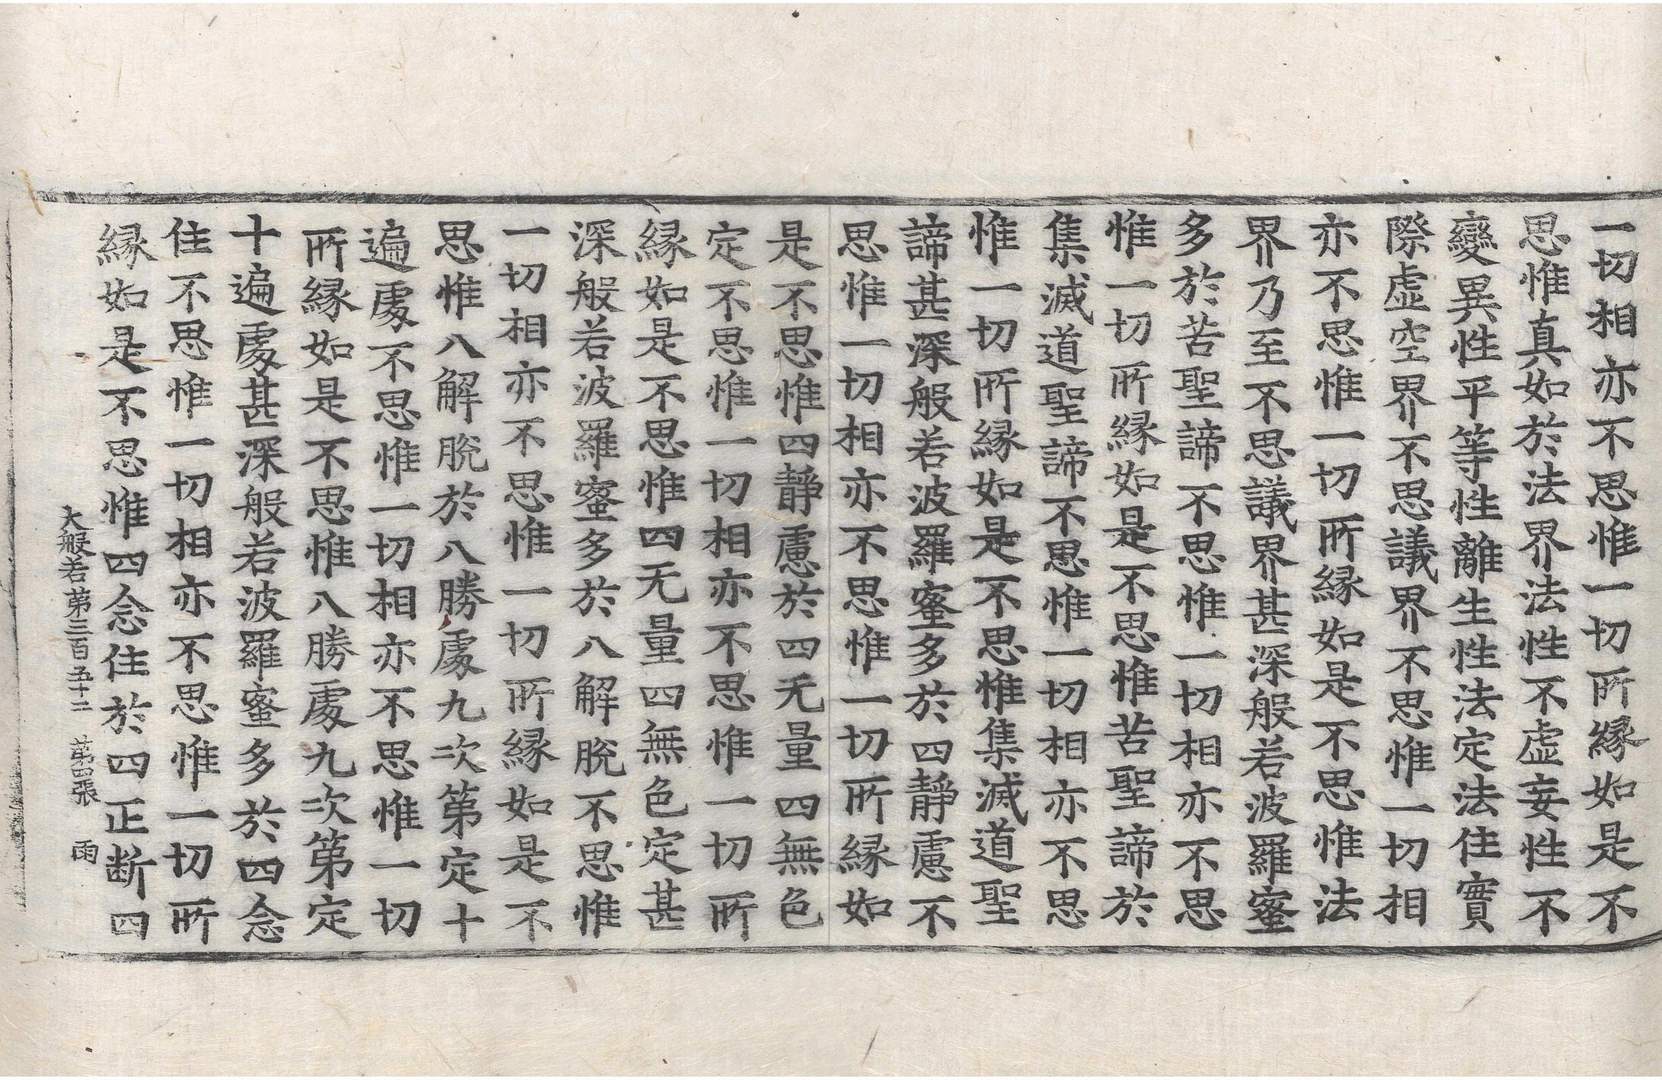 一切相亦不思惟一切所縁如是不
思惟真如於法界法性不虚妄性不
變異性平等性離生性法定法住實
際虚空界不思議界不思惟一切相
亦不思惟一切所縁如是不思惟法
界乃至不思議界甚深般若波羅蜜
多於苦聖諦不思惟一切相亦不思
惟一切所縁如是不思惟苦聖諦於
集滅道聖諦不思惟一切相亦不思
惟一切所縁如是不思惟集滅道聖
諦甚深般若波羅蜜多於四靜慮不
思惟一切相亦不思惟一切所縁如
是不思惟四靜慮於四无量四無色
定不思惟一切相亦不思惟一切所
縁如是不思惟四无量四無色定甚
深般若波羅蜜多於八解脫不思惟
一切相亦不思惟一切所縁如是不
思惟八解脫於八勝處九次第定十
遍處不思惟一切相亦不思惟一切
所縁如是不思惟八勝處九次第定
十遍處甚深般若波羅蜜多於四念
住不思惟一切相亦不思惟一切所
縁如是不思惟四念住於四正断四
大般若第三百五十二 第四張 雨